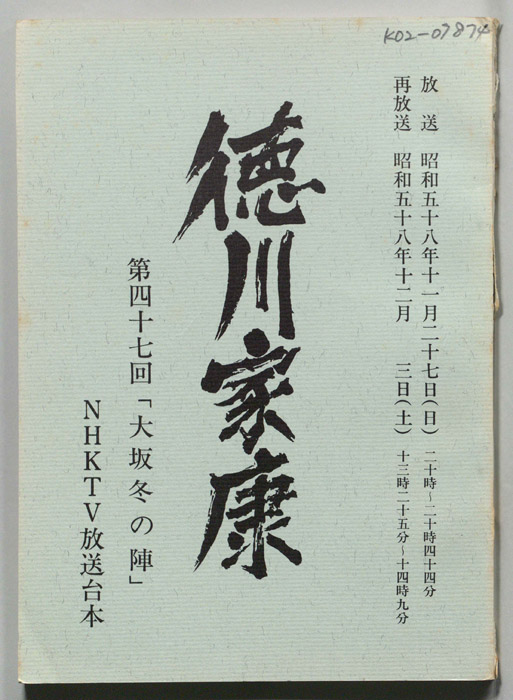 K02-07874
放送 昭和五十八年十一月二十七日(日) 二十時～二十時四十四分
再放送 昭和五十八年十二月 三日(土) 十三時二十五分～十四時九分
徳川家康
第四十七回「大坂冬の陣」
NHKTV放送台本